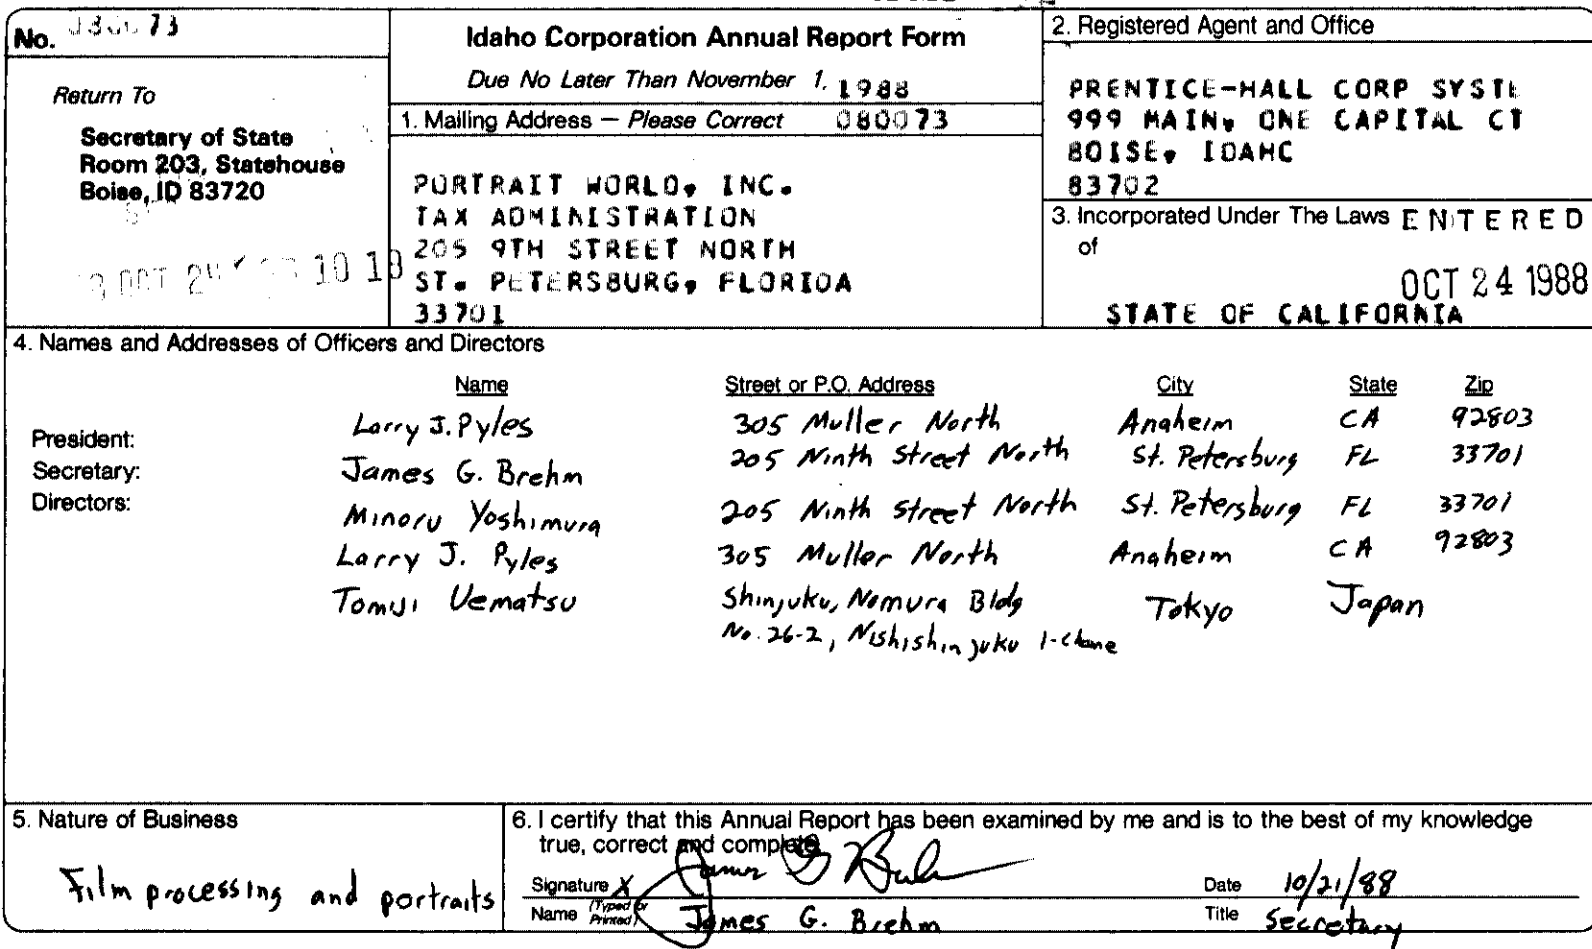 No.
Return To
Secretary of State
Room 203, Statehouse
Boise, ID 83720
Idaho Corporation Annual Report Form
Due No Later Than November 1, 1988
1. Mailing Address — Please Correct 080073
PORTRAIT WORLD, INC.
TAX ADMINISTRATION
205 9TH STREET NORTH
ST. PETERSBURG, FLORIDA
33701
2. Registered Agent and Office
PRENTICE-HALL CORP SYSTE
999 MAIN, ONE CAPITAL CT
BOISE, IDAHO
83702
3. Incorporated Under The Laws
of
ENTERED
OCT 24 1988
STATE OF CALIFORNIA
4. Names and Addresses of Officers and Directors
Name Street or P.O. Address City State Zip
President: Larry J. Pyles 305 Muller North Anaheim CA 92803
Secretary: James G. Brehm 205 Ninth Street North St. Petersburg FL 33701
Directors: Minoru Yoshimura 205 Ninth Street North St. Petersburg FL 33701
Larry J. Pyles 305 Muller North Anaheim CA 92803
Tomiji Uematsu Shinjuku, Nomura Bldg Tokyo Japan
No. 26-2, Nishishinjuku
5. Nature of Business
Film processing and portraits
6. I certify that this Annual Report has been examined by me and is to the best of my knowledge
true, correct and complete
Signature X James G Brehm Date 10/21/88
Name (Typed or Printed) James G. Brehm Title Secretary